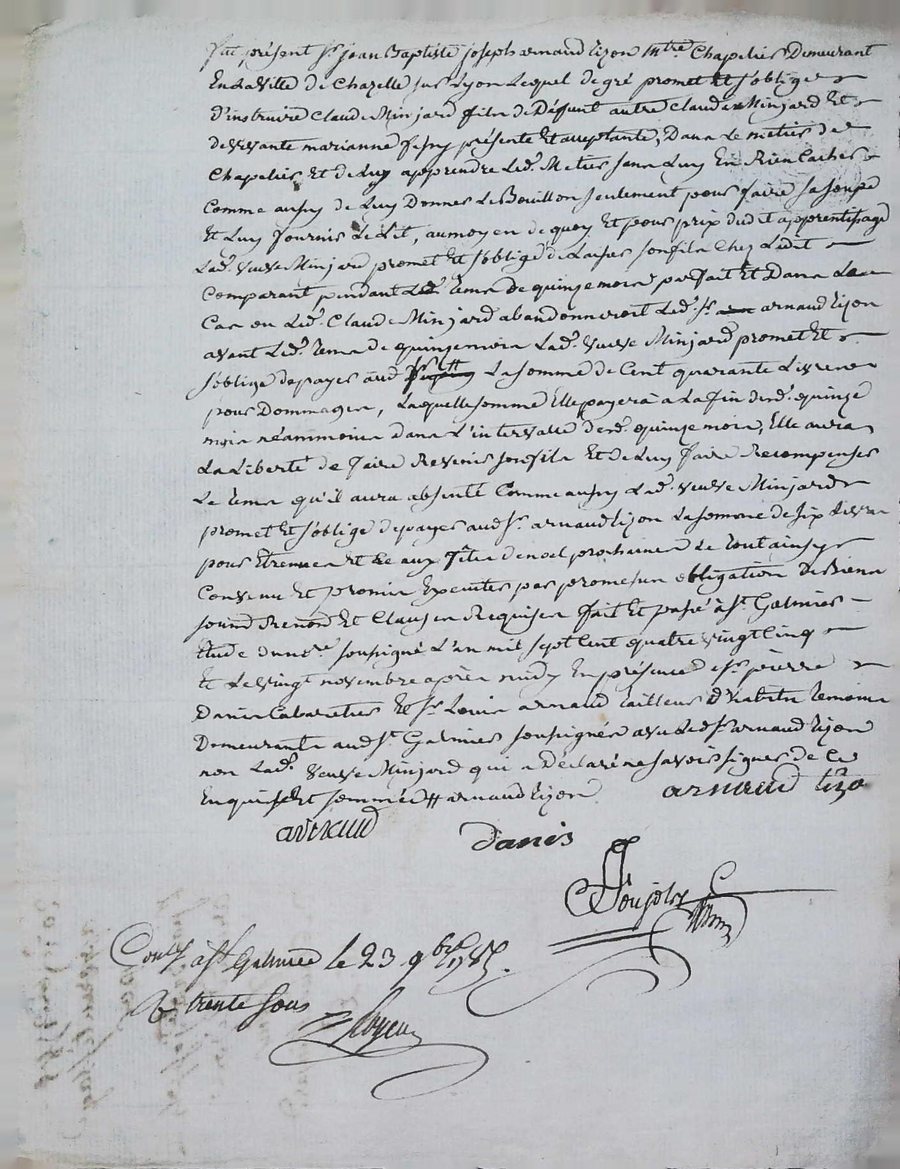 fut présent Sr jean Baptiste joseph arnaud tizon mtre Chapelier Demeurant
En la Ville de Chazelle sur Lyon Lequel de gré promet Et s'oblige
D'instruire Claude Minjard fils de Defunt autre Claude Minjard Et
de vivante marianne présente Et aceptante, Dans Le metier de
Chapelier Et de Luy apprendre Led. Metier sans Luy En Rien Cacher
Comme aussy de Luy Donner Le Bouillon seulement pour faire sa soupe
Et Luy fournir Le Lit, au moyen de quoy Et pour prix dudit apprentissage
Lad. veuve Minjard promet Et s'oblige de Laisser son fils Chez Ledit
Comparant pendant Led. tems de quinze mois parfait Et Dans Le
Cas ou Led. Claude Minjard abandonneroit Led. Sr arnaud tizon
avant Led. tems de quinze mois Lad. veuve Minjard promet Et
s'oblige de payer aud La somme de Cent quarante Livres
pour Dommages, Laquelle somme Elle payera a La fin desd. quinze
mois néammoins dans L'intervalle desd. quinze mois, Elle aura
La Liberté de faire Revenir son fils Et de Luy faire Recompenser
Le tems qu'il aura absenté Comme aussy Lad. veuve Minjard
promet Et s'oblige de payer aud Sr arnaud tizon La somme de six Livres
pour Etrennes Et ce aux fêtes de noel prochaines Le tout ainsy
Convenu Et promis Executer par promesses obligation De Biens
soumd Renond Et Clauses Requises fait Et passé à St Galmier
Etude du nore soussigné L'an mil sept Cent quatre vingt Cinq
Et Le vingt novembre après midy En présence de Sr pierre
Danis Cabaretier Et Sr Louis arnaud tailleur d'habits temoins
Demeurants aud St Galmier soussignés avec led Sr arnaud tizon
non Lad. veuve Minjard qui a Declaré ne savoir signer de Ce
Enquise Et sommée # arnaud tizon arnaud tizo
arnaud
Danis
Poujolx
Conllé a St Galmier le 23 9bre 1785.
R trente sous